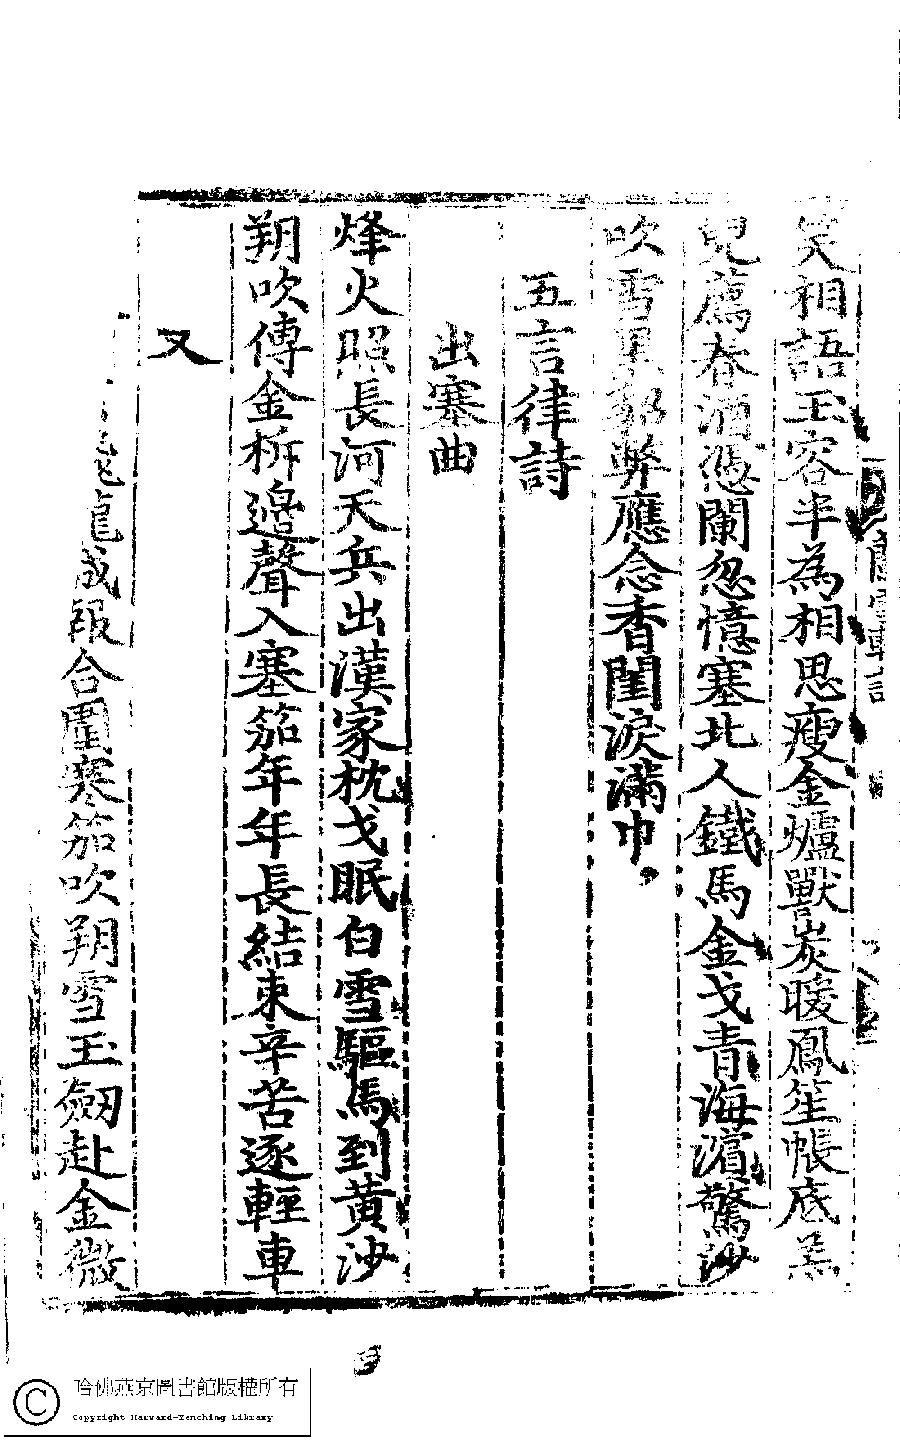 笑相語玉容半為相思瘦金爐獸炭暖鳳笙帳底羔
兒薦春酒憑闌忽憶塞北人鐵馬金戈青海濵驚沙
吹雪黑貂弊應念香閨淚滿巾
五言律詩
出塞曲
烽火照長河天兵出漢家枕戈眠白雪驅馬到黄沙
朔吹傳金柝邉聲入塞笳年年長結束辛苦逐輕車
又
龍城報合圍寒笳吹朔雪玉劒赴金微
哈佛燕京圖書館版權所有
Copyright Harvard-Yenching Library